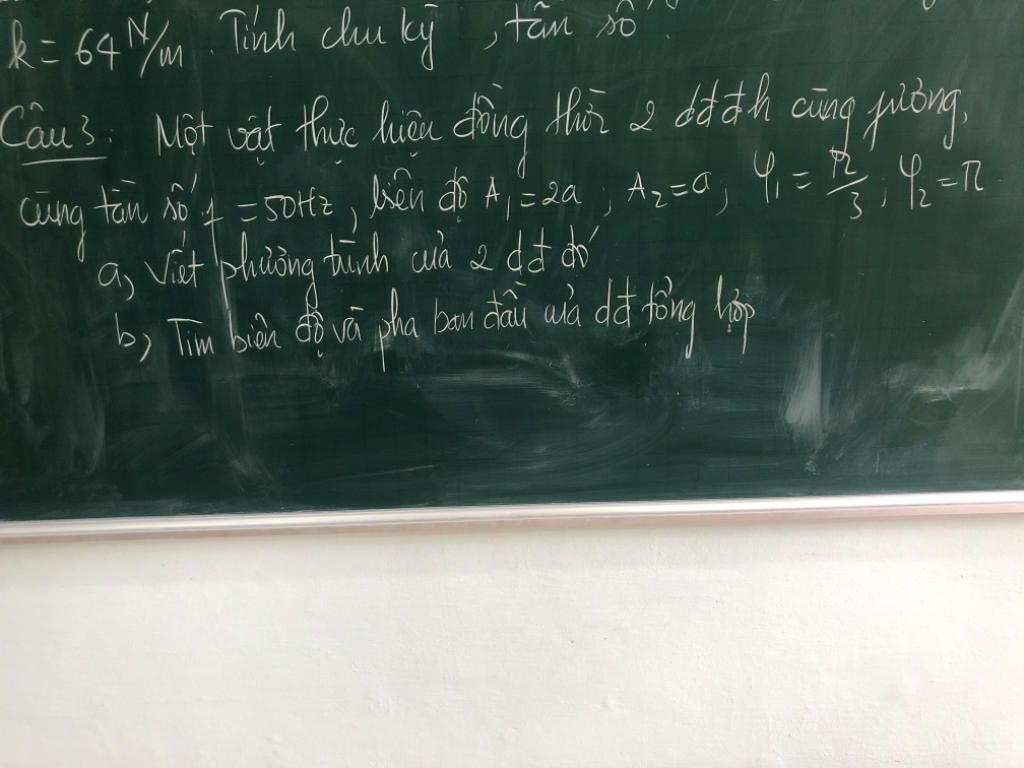 k = 64 N/m. Tính chu kỳ, tần số.
Câu 3: Một vật thực hiện đồng thời 2 dđđh cùng phương,
cùng tần số f = 50Hz, biên độ A₁ = 2a; A₂ = a; φ₁ = π/3; φ₂ = π
a, Viết phương trình của 2 dđ đó
b, Tìm biên độ và pha ban đầu của dđ tổng hợp